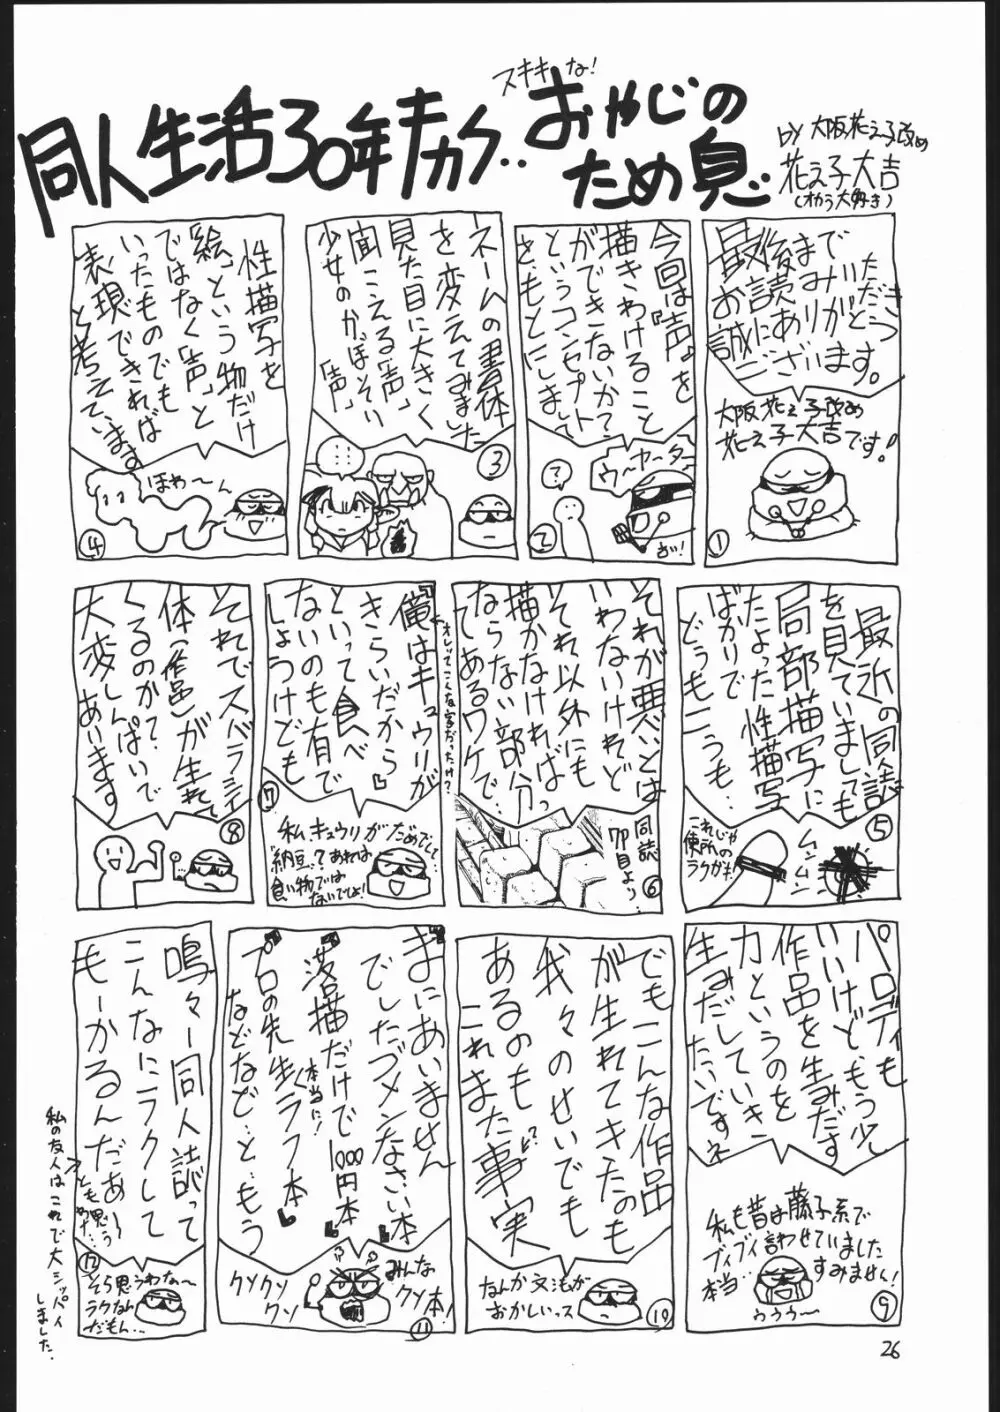 スキキな!
同人生活30年キカク‥おやじの
ため息
by 大阪花え子改め
花え子大吉
(オカラ大好き)
最後まで
お読みいただき
誠にありがとう
ございます。
大阪花え子改め
花え子大吉です!
①
今回は『声』を
描きわけること
ができないかて、
というコンセプト
をもとにしまして
?
ウ〜ヤ〜タ〜
②
ネームの書体
を変えてみました
見た目に大きく
聞こえる「声」
少女のか、ほそい
「声」
③
性描写を
「絵」という物だけ
ではなく「声」と
いったものでも
表現できれば
と考えています
ほわ〜ん
④
最近の同誌
を見ていましても
局部描写に
たよった性描写
ばかりで
どうもこうも…
これじゃ
便所の
ラクガキ!
ムンムン
⑤
それが悪いとは
いわないけれど
それ以外にも
描かなければ
ならない部分
てあるワケで…
同誌
7P目より…
⑥
俺はキュウリが
きらいだから
といって食べ
ないのも有で
しょうけども
オレってこんな字だったけ?
私、キュウリがだめでして…
「納豆」てあれは
食い物では
ないでしょ!
⑦
それでスバラシイ
体(作品)が生れて
くるのかて、
大変しんぱいで
あります
⑧
パロディも
いいけどもう少し
作品を生みだす
力というのを
生みだしていき
たいですネ
私も昔は藤子系で
ブイブイ言わせていました
本当…すみません!
ううう〜
⑨
でもこんな作品
が生れてきたのも
我々のせいでも
あるのも
これまた事実
なんか文法が
おかしいっス
⑩
まにあいません
でしたゴメンなさい本
落描だけで1000円本
本当に!
プロの先生〈ラフ本
などなど…ともう
みんな
クソ本!
クソクソ
クソ
⑪
鳴々ー同人誌って
こんなにラクして
もーかるんだあ〜
とも思う
わナ…
そら思うわな〜
ラクなん
だもん…
⑫
私の友人はこれで大シッパイ
しました.
26